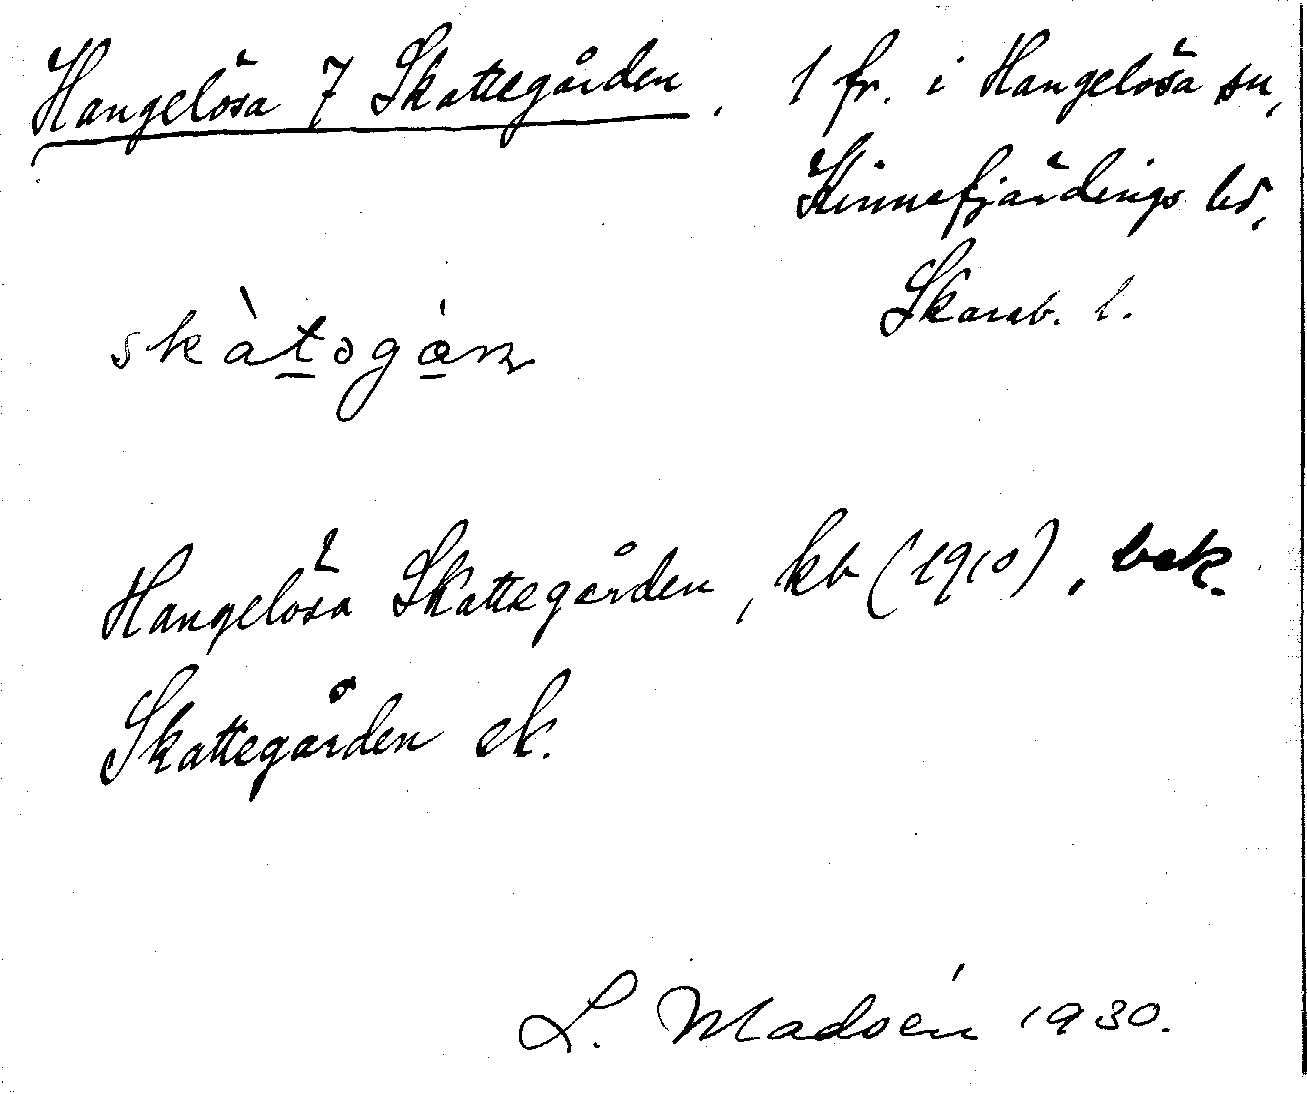 Hangelösa 7 Skattegården. 1 fr. i Hangelösa sn,
Kinnefjärdings hd,
Skarab. l.
skàtogán
Hangelösa Skattegården, kb (1910), bek.
Skattegården ek.
L. Madsén 1930.